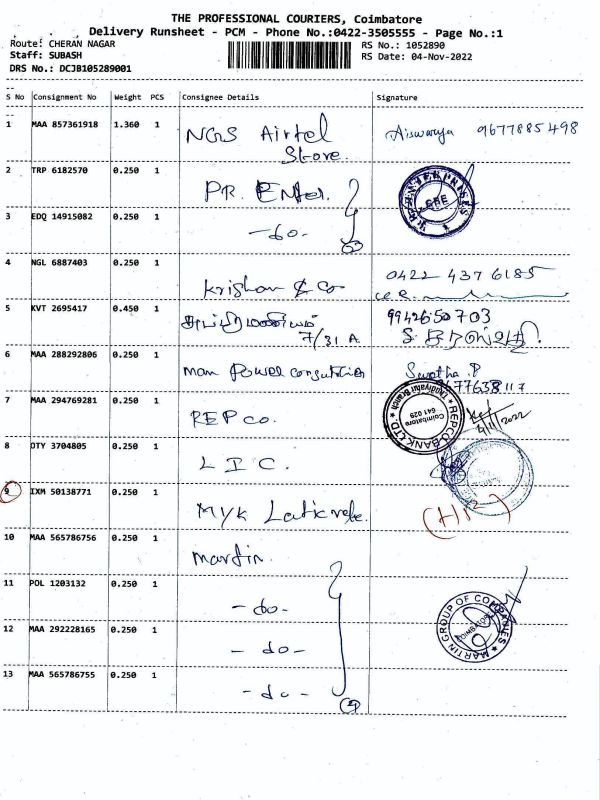 THE PROFESSIONAL COURIERS, Coimbatore
Delivery Runsheet - PCM - Phone No.:0422-3505555 - Page No.:1
Route: CHERAN NAGAR RS No.: 1052890
Staff: SUBASH RS Date: 04-Nov-2022
DRS No.: DCJB105289001
S No Consignment No Weight PCS Consignee Details Signature
1 MAA 857361918 1.360 1 NGS Airtel Store. Aiswarya 9677885498
2 TRP 6182570 0.250 1 P.R. Enter.
3 EDQ 14915082 0.250 1 -do-
4 NGL 6887403 0.250 1 Krishan & Co 0422 437 6185
5 KVT 2695417 0.450 1 சுப்பிரமணியம் 7/31 A 9942650703
6 MAA 288292806 0.250 1 man Power Swatha.P 9677638117
7 MAA 294769281 0.250 1 REPCO. REPCO BANK LTD Thudiyalur Branch Coimbatore 641 029 4/11/2022
8 OTY 3704805 0.250 1 L I C.
9 IXM 50138771 0.250 1 Myk
10 MAA 565786756 0.250 1 Martin.
11 POL 1203132 0.250 1 -do-
12 MAA 292228165 0.250 1 -do-
13 MAA 565786755 0.250 1 -do-
MARTIN GROUP OF COMPANIES COIMBATORE